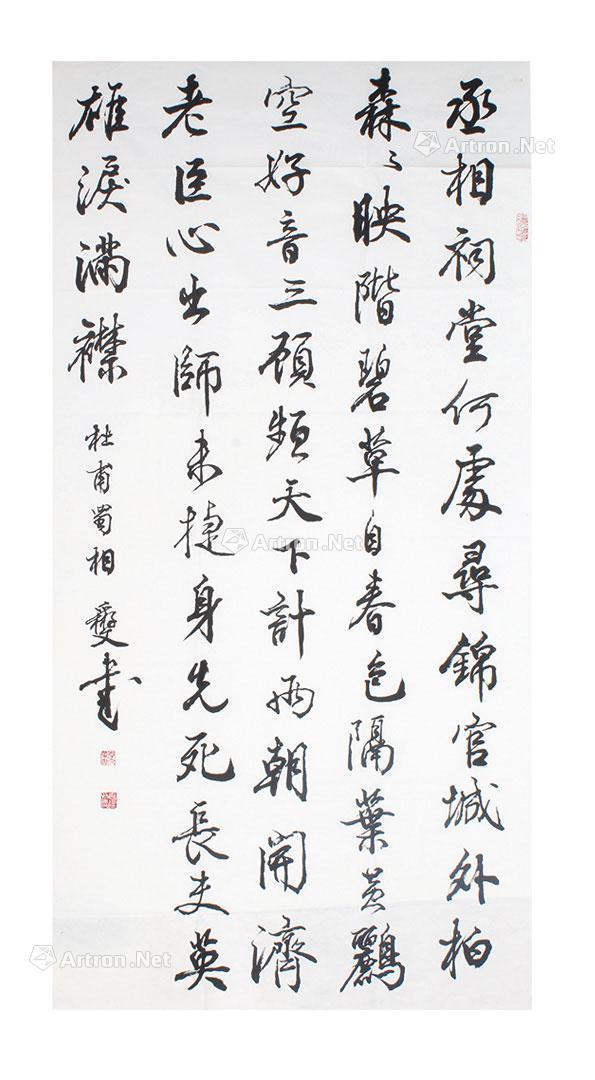 丞相祠堂何處尋錦官城外柏
森〻映階碧草自春色隔葉黃鸝
空好音三顧頻天下計兩朝開濟
老臣心出師未捷身先死長英
雄淚滿襟
杜甫蜀相 燮書
Artron.Net
Artron.Net
Artron.Net